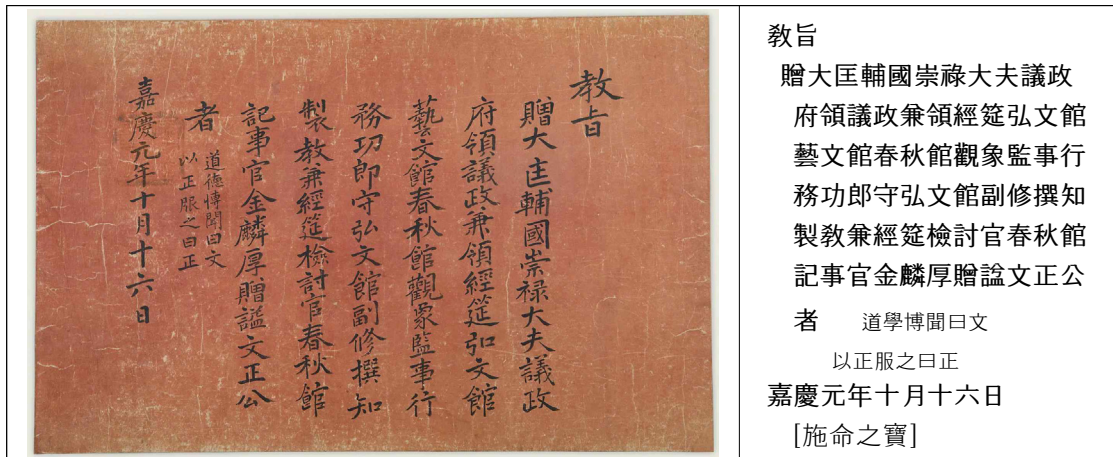 教旨
贈大匡輔國崇禄大夫議政
府領議政兼領經筵弘文館
藝文館春秋館觀象監事行
務功郎守弘文館副修撰知
製教兼經筵檢討官春秋館
記事官金麟厚贈謚文正公
者 道德博聞曰文
以正服之曰正
嘉慶元年十月十六日
敎旨
贈大匡輔國崇祿大夫議政
府領議政兼領經筵弘文館
藝文館春秋館觀象監事行
務功郎守弘文館副修撰知
製敎兼經筵檢討官春秋館
記事官金麟厚贈諡文正公
者 道學博聞曰文
以正服之曰正
嘉慶元年十月十六日
[施命之寶]